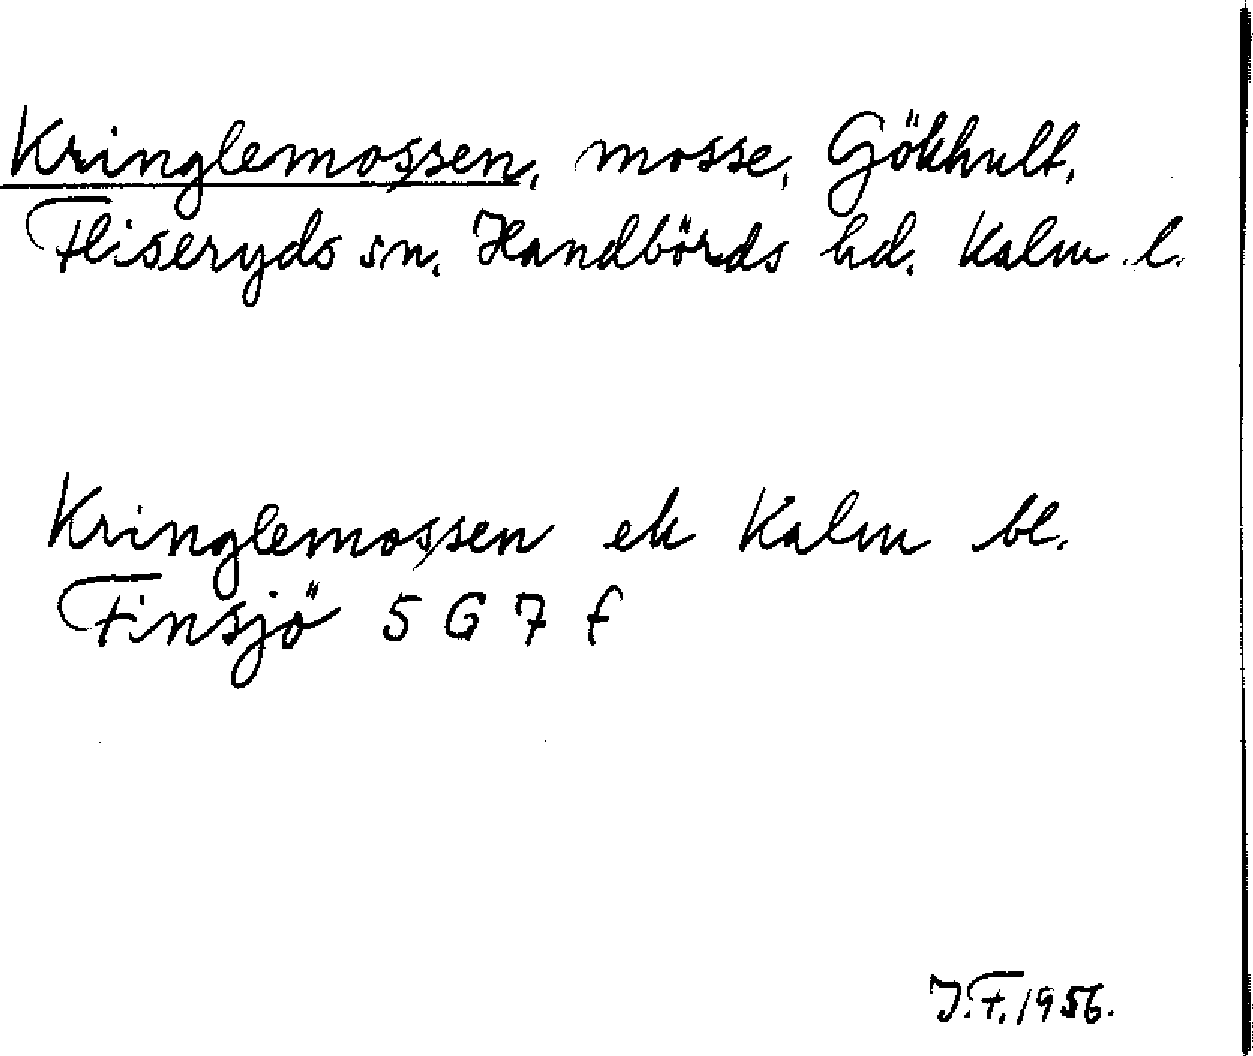 Kringlemossen, mosse, Gökhult,
Fliseryds sn. Handbörds hd. Kalm. l.
Kringlemossen ek Kalm bl.
Finsjö 5 G 7 f
J.F. 1956.